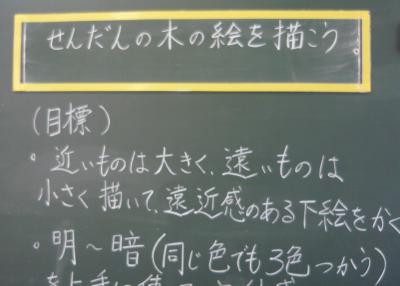 せんだんの木の絵を描こう。
(目標)
・近いものは大きく、遠いものは
小さく描いて、遠近感のある下絵をかく
・明〜暗(同じ色でも3色つかう)
を上手に使って